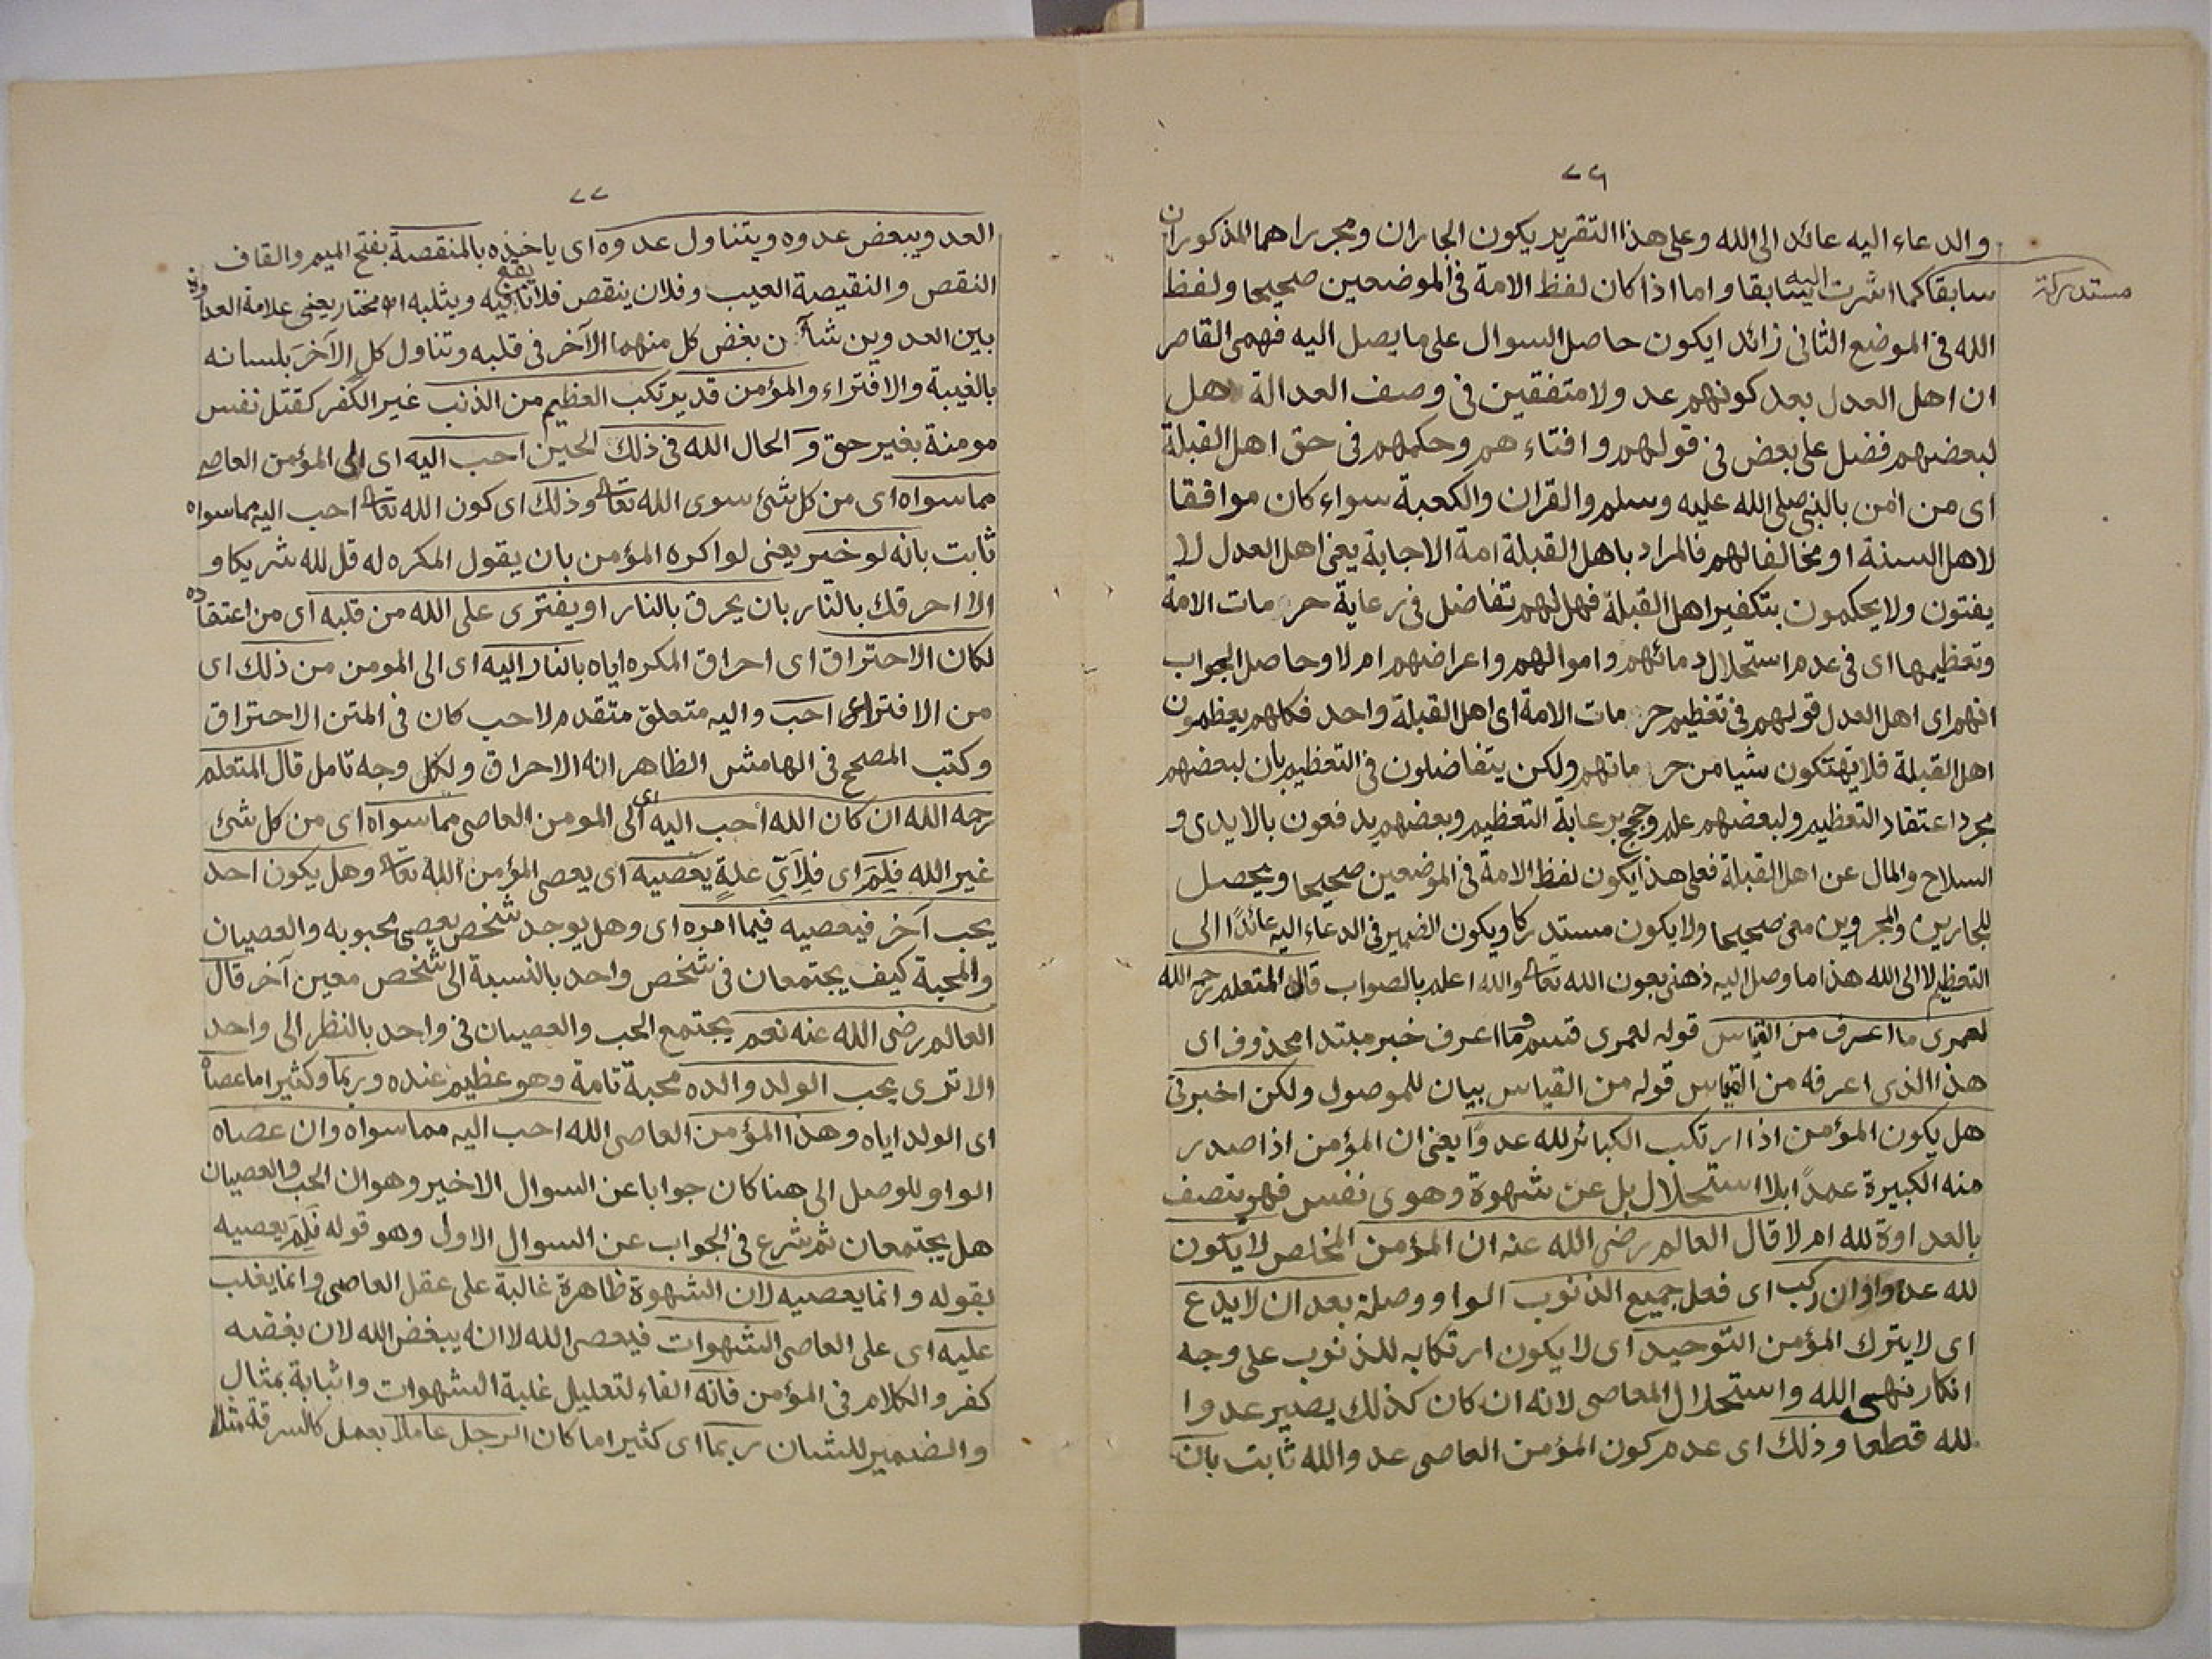 ٧٦
والدعاء اليه عائد الى الله وعلى هذا التقرير يكون الجاران ومجروراهما المذكوران
سابقا كما اشرت اليه سابقا واما اذا كان لفظ الامة فى الموضعين صحيحا ولفظ
مستدركة
الله فى الموضع الثانى زائدا يكون حاصل السوال على ما يصل اليه فهمى القاصر
ان اهل العدل بعد كونهم عدولا متفقين فى وصف العدالة هل
لبعضهم فضل على بعض فى قولهم وافتاءهم وحكمهم فى حق اهل القبلة
اى من اٰمن بالنبى صلى الله عليه وسلم والقران والكعبة سواء كان موافقا
لاهل السنة او مخالفا لهم فالمراد باهل القبلة امة الاجابة يعنى اهل العدل لا
يفتون ولا يحكمون بتكفير اهل القبلة فهل لهم تفاضل فى رعاية حرمات الامة
وتعظيمها اى فى عدم استحلال دمائهم واموالهم واعراضهم ام لا وحاصل الجواب
انهم اى اهل العدل قولهم فى تعظيم حرمات الامة اى اهل القبلة واحد فكلهم يعظمون
اهل القبلة فلا يهتكون شيا من حرماتهم ولكن يتفاضلون فى التعظيم بان لبعضهم
مجرد اعتقاد التعظيم ولبعضهم علم وحجج برعاية التعظيم وبعضهم يدفعون بالايدى و
السلاح والمال عن اهل القبلة فعلى هذا يكون لفظ الامة فى الموضعين صحيحا ويحصل
للجارين والمجرورين معنى صحيحا ولا يكون مستدركا ويكون الضمير فى الدعاء اليه عائدًا الى
التعظيم لا الى الله هذا ما وصل اليه ذهنى بعون الله تعالى والله اعلم بالصواب قال المتعلم رحمه الله
لعمرى ما اعرف من القياس قوله لعمرى قسم وما اعرف خبر مبتدا محذوف اى
هذا الذى اعرفه من القياس قوله من القياس بيان للموصول ولكن اخبرنى
هل يكون المؤمن اذا ارتكب الكبائر لله عدوًا يعنى ان المؤمن اذا صدر
منه الكبيرة عمدًا بلا استحلال بل عن شهوة وهوى نفس فهو يتصف
بالعداوة لله ام لا قال العالم رضى الله عنه ان المؤمن المخلص لا يكون
لله عدوا وان ركب اى فعل جميع الذنوب الواو وصلية بعد ان لا يدع
اى لا يترك المؤمن التوحيد اى لا يكون ارتكابه للذنوب على وجه
انكار نهى الله واستحلال المعاصى لانه ان كان كذلك يصير عدوا
لله قطعا وذلك اى عدم كون المؤمن العاصى عدوالله ثابت بان
٧٧
العدو يبغض عدوه ويتناول عدوه اى ياخذه بالمنقصة بفتح الميم والقاف
النقص والنقيصة العيب وفلان ينقص فلانا يقع فيه ويثلبه اه مختار يعنى علامة العداوة
بين العدوين شاٰن بغض كل منهما الآخر فى قلبه وتناول كل الآخر بلسانه
بالغيبة والافتراء والمؤمن قد يرتكب العظيم من الذنب غير الكفر كقتل نفس
مومنة بغير حق و الحال الله فى ذلك الحين احب اليه اى الى المؤمن العاصى
مما سواه اى من كل شئ سوى الله تعالى وذلك اى كون الله تعالى احب اليه مما سواه
ثابت بانه لو خير يعنى لو اكره المؤمن بان يقول المكره له قل لله شريكا و
الا احرقك بالنار بان يحرق بالنار او يفترى على الله من قلبه اى من اعتقاده
لكان الاحتراق اى احراق المكره اياه بالنار اليه اى الى المومن من ذلك اى
من الافتراء احب واليه متعلق متقدم لاحب كان فى المتن الاحتراق
وكتب المصحح فى الهامش الظاهر انه الاحراق ولكل وجه تامل قال المتعلم
رحمه الله ان كان الله أحب اليه اى الى المومن العاصى مما سواه اى من كل شئ
غير الله فَلِمَ اى فَلِاَيِّ علةٍ يعصيه اى يعصى المؤمن الله تعالى وهل يكون احد
يحب آخر فيعصيه فيما امره اى وهل يوجد شخص يعصى محبوبه والعصيان
والمحبة كيف يجتمعان فى شخص واحد بالنسبة الى شخص معين آخر قال
العالم رضى الله عنه نعم يجتمع الحب والعصيان فى واحد بالنظر الى واحد
الا ترى يحب الولد والده محبة تامة وهو عظيم عنده وربما وكثيرا ما عصاه
اى الولد اياه وهذا المؤمن العاصى الله احب اليه مما سواه وان عصاه
الواو للوصل الى هنا كان جوابا عن السوال الاخير وهو ان الحب والعصيان
هل يجتمعان ثم شرع فى الجواب عن السوال الاول وهو قوله فَلِمَ يعصيه
بقوله وانما يعصيه لان الشهوة ظاهرة غالبة على عقل العاصى وانما يغلب
عليه اى على العاصى الشهوات فيعصى الله لا انه يبغض الله لان بغضه
كفر والكلام فى المؤمن فانه الفاء لتعليل غلبة الشهوات واثباته بمثال
والضمير للشان ربما اى كثيرا ما كان الرجل عاملا بعمل كالسرقة مثلا